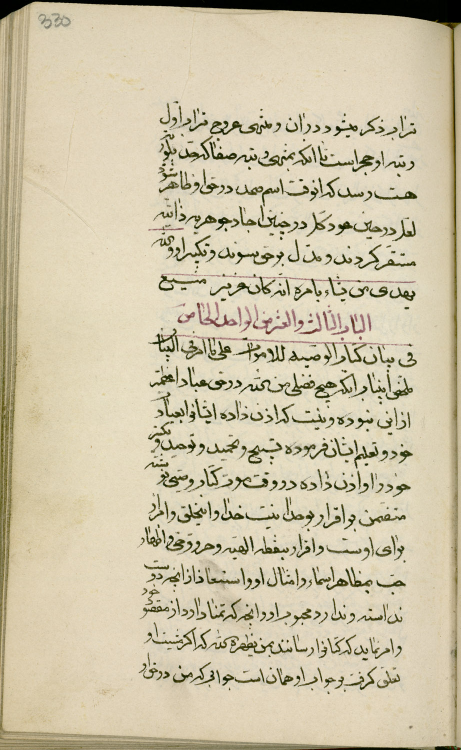 330
تراب ذكر ميشود در ان و منتهى عروج تراب اول
رتبه او حجر است تا انكه بمنتهى رتبه صفا كه حد بلور
هست رسد كه انوقت اسم صمد در حق او ظاهر شود
لعل در حين خود كل در حين اتحاد جوهريه ذالله
مستقر كردند و مدل بر حق شوند و تكبير او والله
يهدى من يشاء بامره انه كان عزيز منيع
الباب الثالث والعشر من الواحد الخامس
فى بيان كتاب الوصية للاموات على ما امر فى البيان
ملخص اين باب انكه هيچ فضلى من عند در حق عباد اعظم
از اين نبوده و نيست كه اذن داده ايشانرا بعباد
خود و تعليم ايشان فرموده تسبيح و تحميد و توحيد و تكبير
خود را و اذن داده در وقت موت كتاب وصيتى نوشته
متضمن بر اقرار بوحدانيت خدا و اينكه خلق و امر از
براى اوست و اقرار بنقطه الهيه و حروف حى و اظهار
حب بمظاهر اسماء و امثال او و استعاذ از انچه دوست
نداشته و ندارد محبوب او و انچه كه تمنا دارد از مقصود خود
و امر نمايد كه كتاب را رسانند بمن يظهره الله كه اكر مشيت او
تعلق كرفت بر جواب او همان است جوابى كه من در حق او